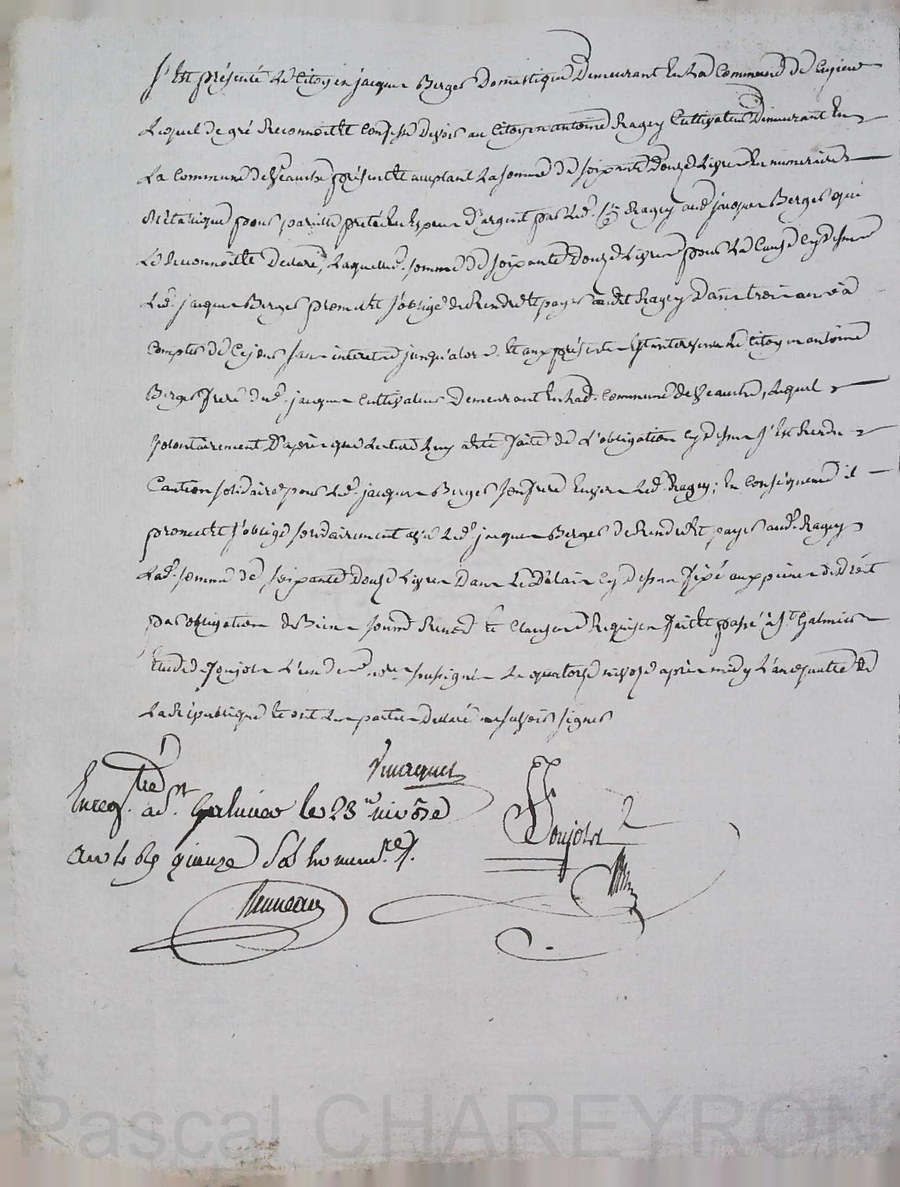 S'est présenté le citoyen jacque Berger Domestique Demeurant en la Commune de Cuzieu
Lequel de gré Reconnoit et Confesse Devoir au Citoyen antoine Ragey Cultivateur Demeurant En
La Commune de Veauche présent et acceptant La somme de soixante Douze Livres En numeraire
Métalique pour pareille prétée En Espece d'argent par led. Ragey aud. jacque Berger qui
Le Reconnoit et Declare, Laquelle somme de soixante Douze Livres pour La Cause Cy dessus
Led. jacque Berger promet et s'oblige de Rendre et payer audit Ragey Dans trois années à
Compter de Ce jour sans interet jusqu'alors. Et aux présentes Est intervenu Le Citoyen antoine
Berger frere dud. jacque Cultivateur Demeurant En lad. Commune de Veauche, Lequel
volontairement D'après que Lecture Luy a été faite de L'obligation Cy dessus s'Est Rendu
Caution solidaire pour Led. jacque Berger son frere Envers Led. Ragey; En Conséquence il
promet et s'oblige solidairement avec Led. jacque Berger de Rendre et payer aud. Ragey
Lad. somme de soixante Douze Livres Dans Le Délai Cy dessus fixé aux peines de Droit
par obligation de Biens soumis Renoncé et Clauses Requises fait et passé à St. Galmier
Etude de Joujole L'un des nores. soussignés Le quatorze nivose après midy L'an quatre de
La République et ont Les parties Declaré ne sçavoir signer
Enregtré. a St. Galmier le 23 nivôse
an 4 Rs quinze sols
Joujole